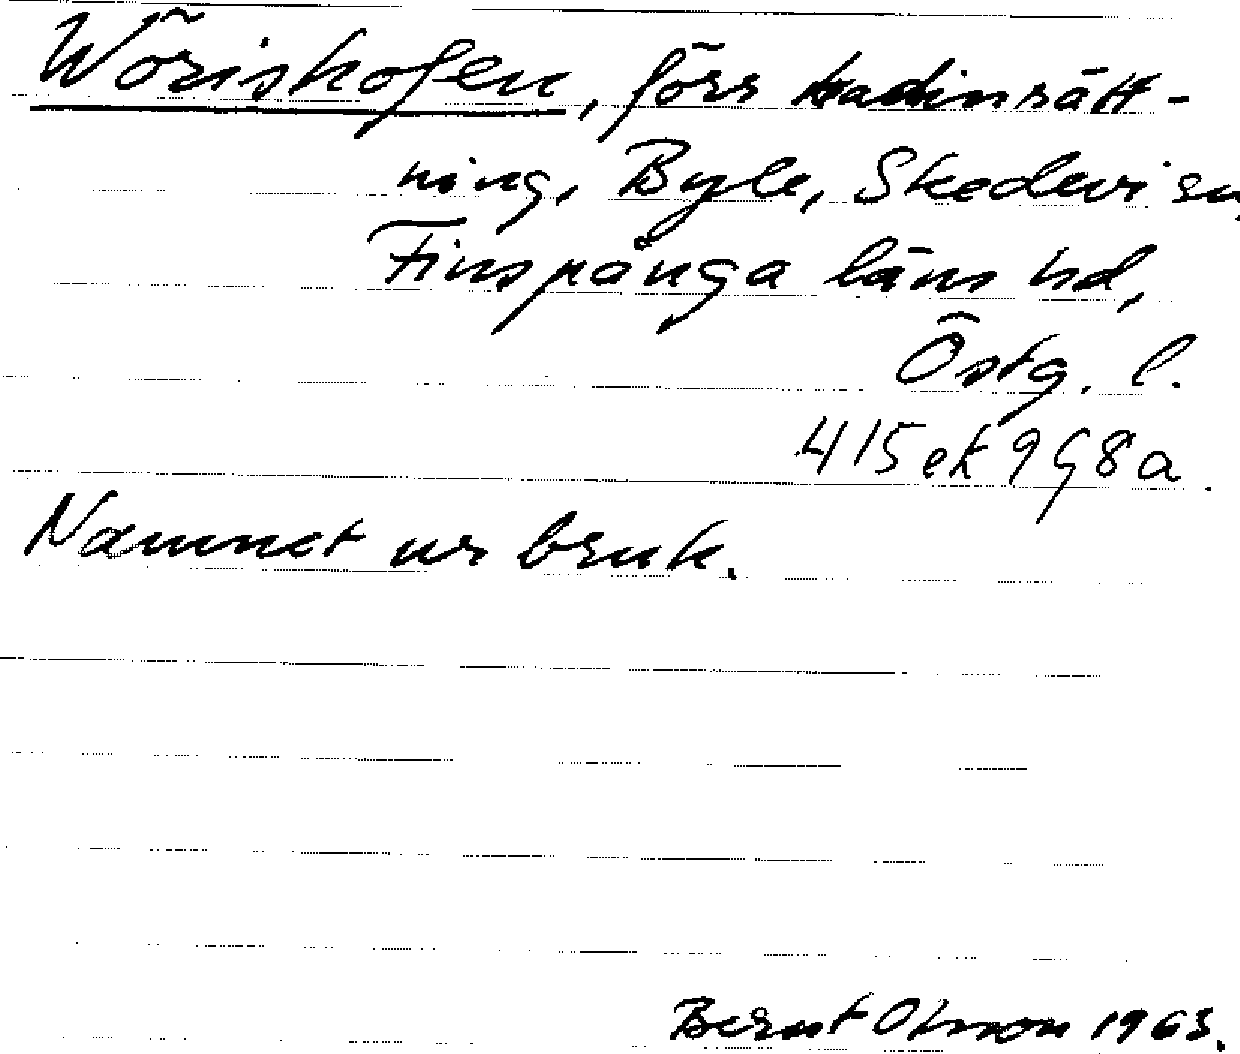 Wörishofen, förr badinrätt-
ning, Byle, Skedevi sn,
Finspånga läns hd,
Östg. l.
415 ek 9 G 8 a.
Namnet ur bruk.
Bernt Olsson 1963.